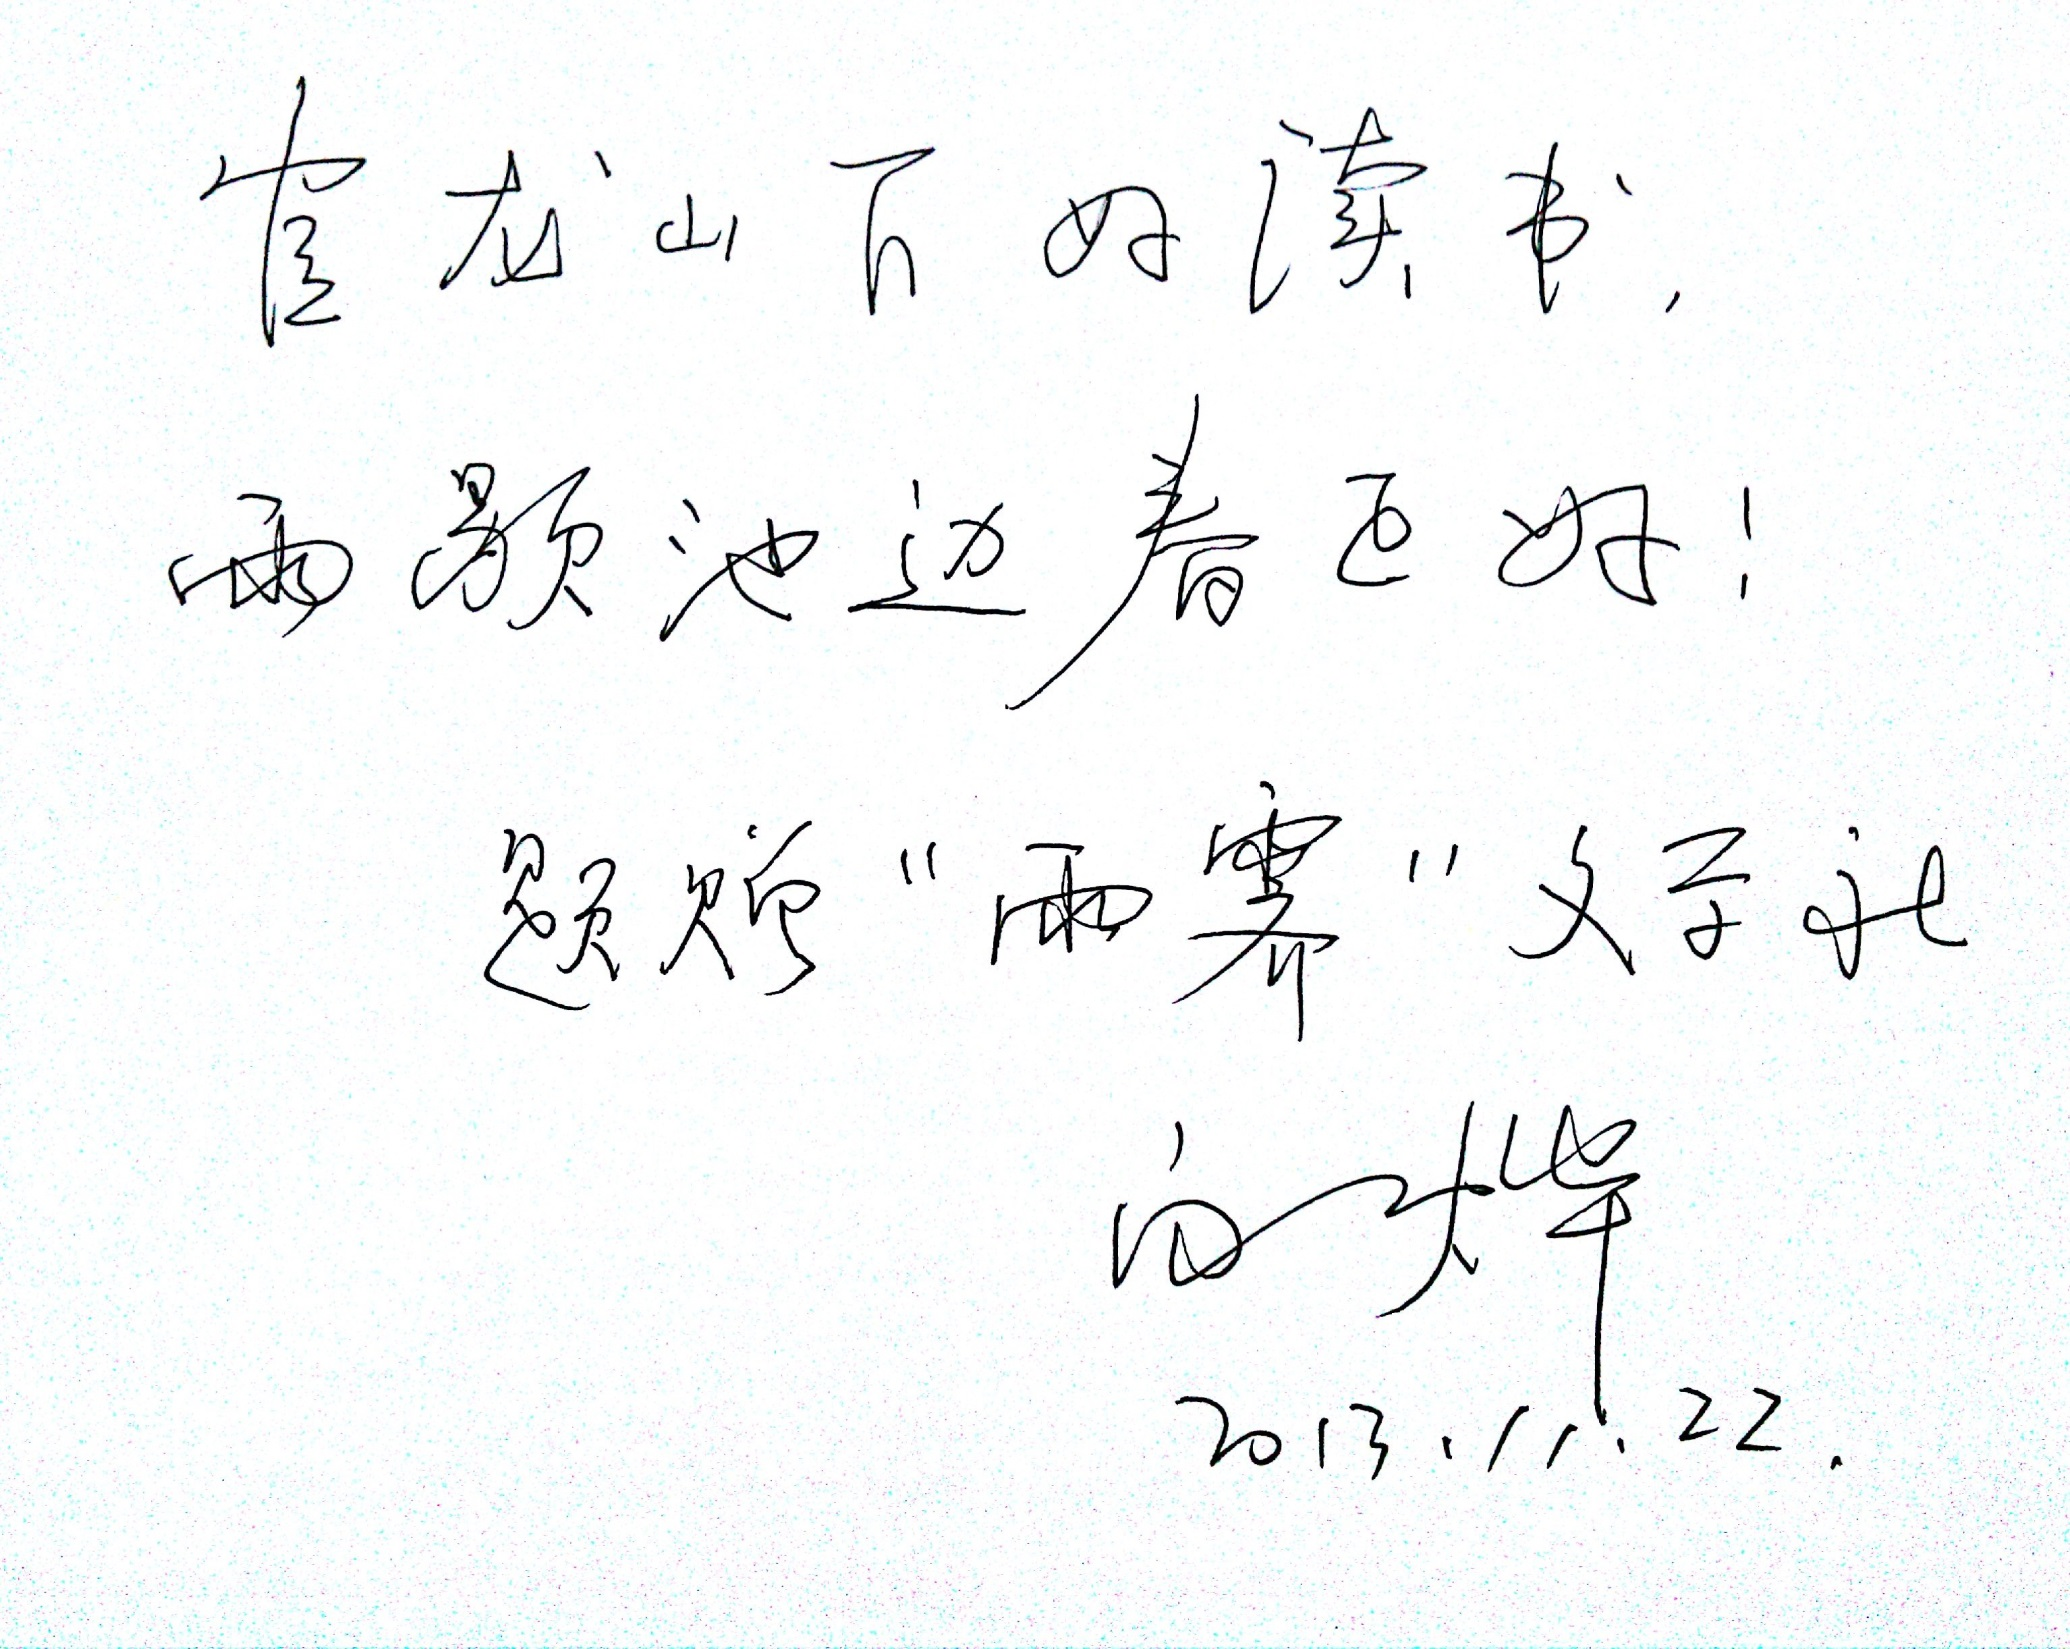 官龙山下好读书,
雨颢池边春正好!
题赠“雨霁”文学社
白烨
2013.11.22.